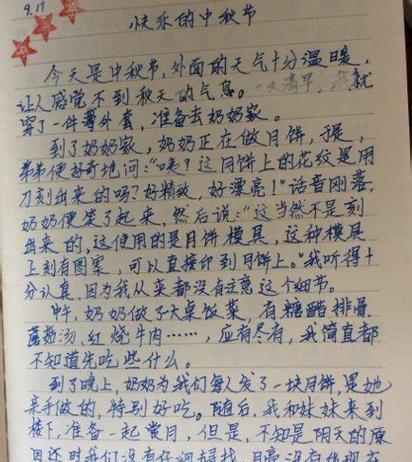 9.17
快乐的中秋节
今天是中秋节,外面的天气十分温暖,
让人感觉不到秋天的气息。"大清早,我就
穿了一件薄外套,准备去奶奶家。
到了奶奶家,奶奶正在做月饼,于是,
弟弟便好奇地问:"咦?这月饼上的花纹是用
刀刻出来的吗?好精致,好漂亮!"话音刚落,
奶奶便笑了起来,然后说:"这当然不是刻
出来的,这使用的是月饼模具,这种模具
上刻有图案,可以直接印到月饼上。"我听得十
分认真,因为我从来都没有注意这个细节。
中午,奶奶做了大桌饭菜,有糖醋排骨
蘑菇汤、红烧牛肉……,应有尽有,我简直都
不知道先吃些什么。
到了晚上,奶奶为我们每人发了一块月饼,是她
亲手做的,特别好吃。随后,我和妹妹来到
楼下,准备一起赏月,但是,不知是阴天的原
因还是我们没有仔细寻找,月亮没有出现在